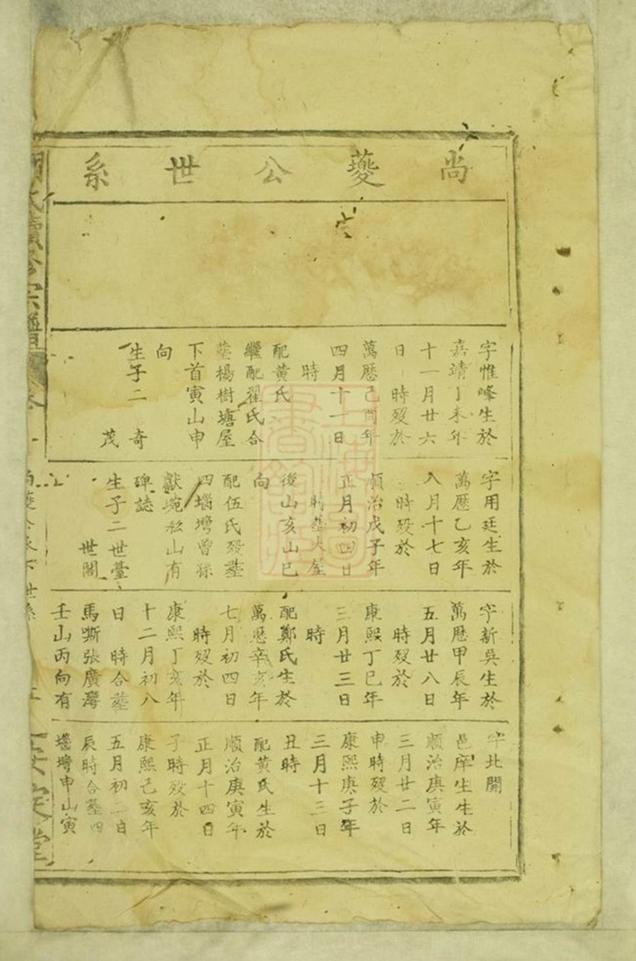 尚夔公世系
字惟峰生於
嘉靖丁未年
十一月廿六
日　時歿於
萬歷己酉年
四月十一日
時
配黃氏
繼配翟氏合
墓楊樹塘屋
下首寅山申
向
生子二　奇
茂
字用廷生於
萬歷乙亥年
八月十七日
時歿於
順治戊子年
正月初四日
時葬大屋
後山亥山巳
向
配伍氏歿墓
四墈塆曾孫
獻琬私山有
碑誌
生子二世臺
世閣
字新吳生於
萬歷甲辰年
五月廿八日
時歿於
康熙丁巳年
三月廿三日
時
配鄭氏生於
萬歷辛亥年
七月初四日
時歿於
康熙丁亥年
十二月初八
日　時合墓
馬嘶張廣灣
壬山丙向有
字北開
邑庠生生於
順治庚寅年
三月廿二日
申時歿於
康熙庚子年
三月十三日
丑時
配黃氏生於
順治庚寅年
正月十四日
子時歿於
康熙己亥年
五月初二日
辰時合墓四
墈塆申山寅
續修宗譜